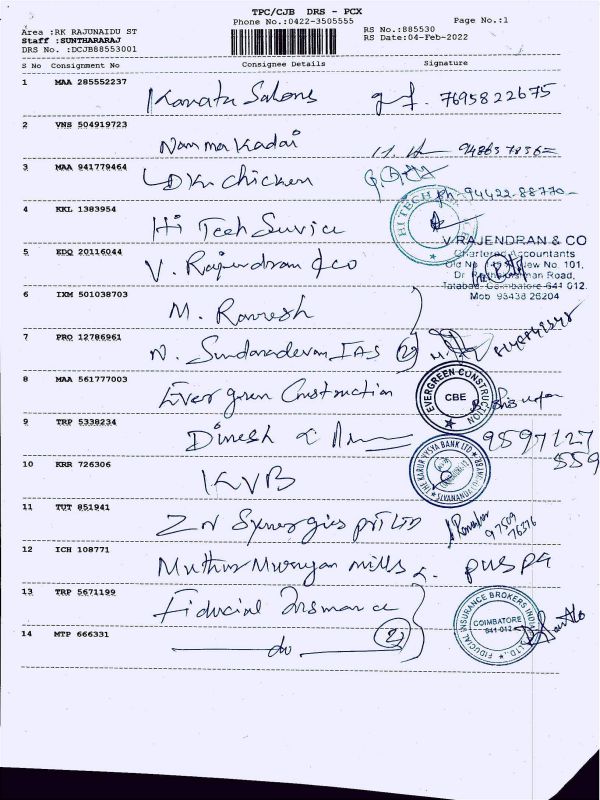 TPC/CJB DRS - PCX
Phone No.:0422-3505555
Page No.:1
Area :RK RAJUNAIDU ST
Staff :SUNTHARARAJ
DRS No. :DCJB88553001
RS No.:885530
RS Date:04-Feb-2022
S No Consignment No Consignee Details Signature
1 MAA 285552237 Salons 7695822675
2 VNS 504919723 Namma Kadai
3 MAA 941779464 Chicken Ph. 94422-88770
4 KKL 1383954 Hi Tech Service
HI TECH
5 EDQ 20116044 V. Rajendran & co
V RAJENDRAN & CO
Chartered Accountants
Old No. New No. 101,
Dr. Road,
Tatabad, Coimbatore 641 012.
Mob 98438 26204
6 IXM 501038703 M. Ramesh
7 PRO 12786961 N. Sundaradevan IAS (2)
8 MAA 561777003 Evergreen Construction
EVERGREEN CONSTRUCTION
CBE
9 TRP 5338234 Dinesh 9597127
559
10 KRR 726306 KVB
THE KARUR VYSYA BANK LTD
SIVANANDA
11 TUT 851941 Synergies Pvt Ltd
97509
76376
12 ICH 108771 Muthu Murugan mills
13 TRP 5671199 Fiducial Insurance
FIDUCIAL INSURANCE BROKERS INDIA LTD.,
COIMBATORE
641 012
14 MTP 666331 do (2)